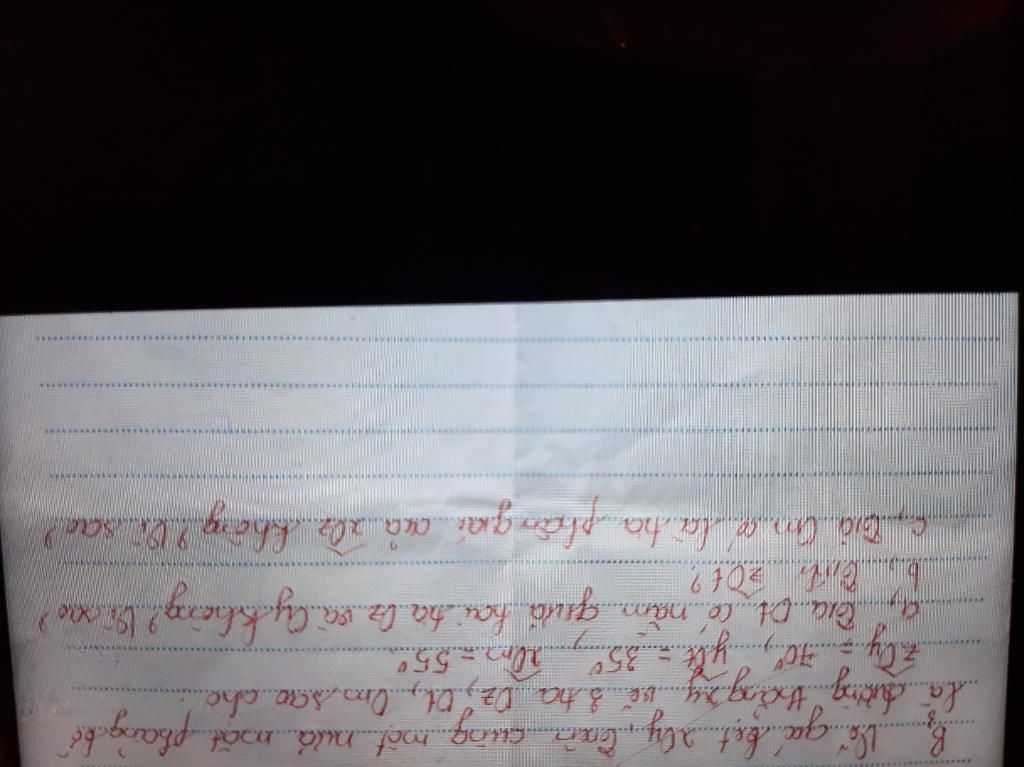 B3, Vẽ góc bẹt xOy, trên cùng một nửa mặt phẳng bờ
là đường thẳng xy vẽ 3 tia Oz, Ot, Om sao cho
zOy = 70°, yOt = 35°, xOm = 55°.
a, Tia Ot có nằm giữa hai tia Oz và Oy không? Vì sao?
b, Tính zOt?
c, Tia Om có là tia phân giác của xOz không? Vì sao?